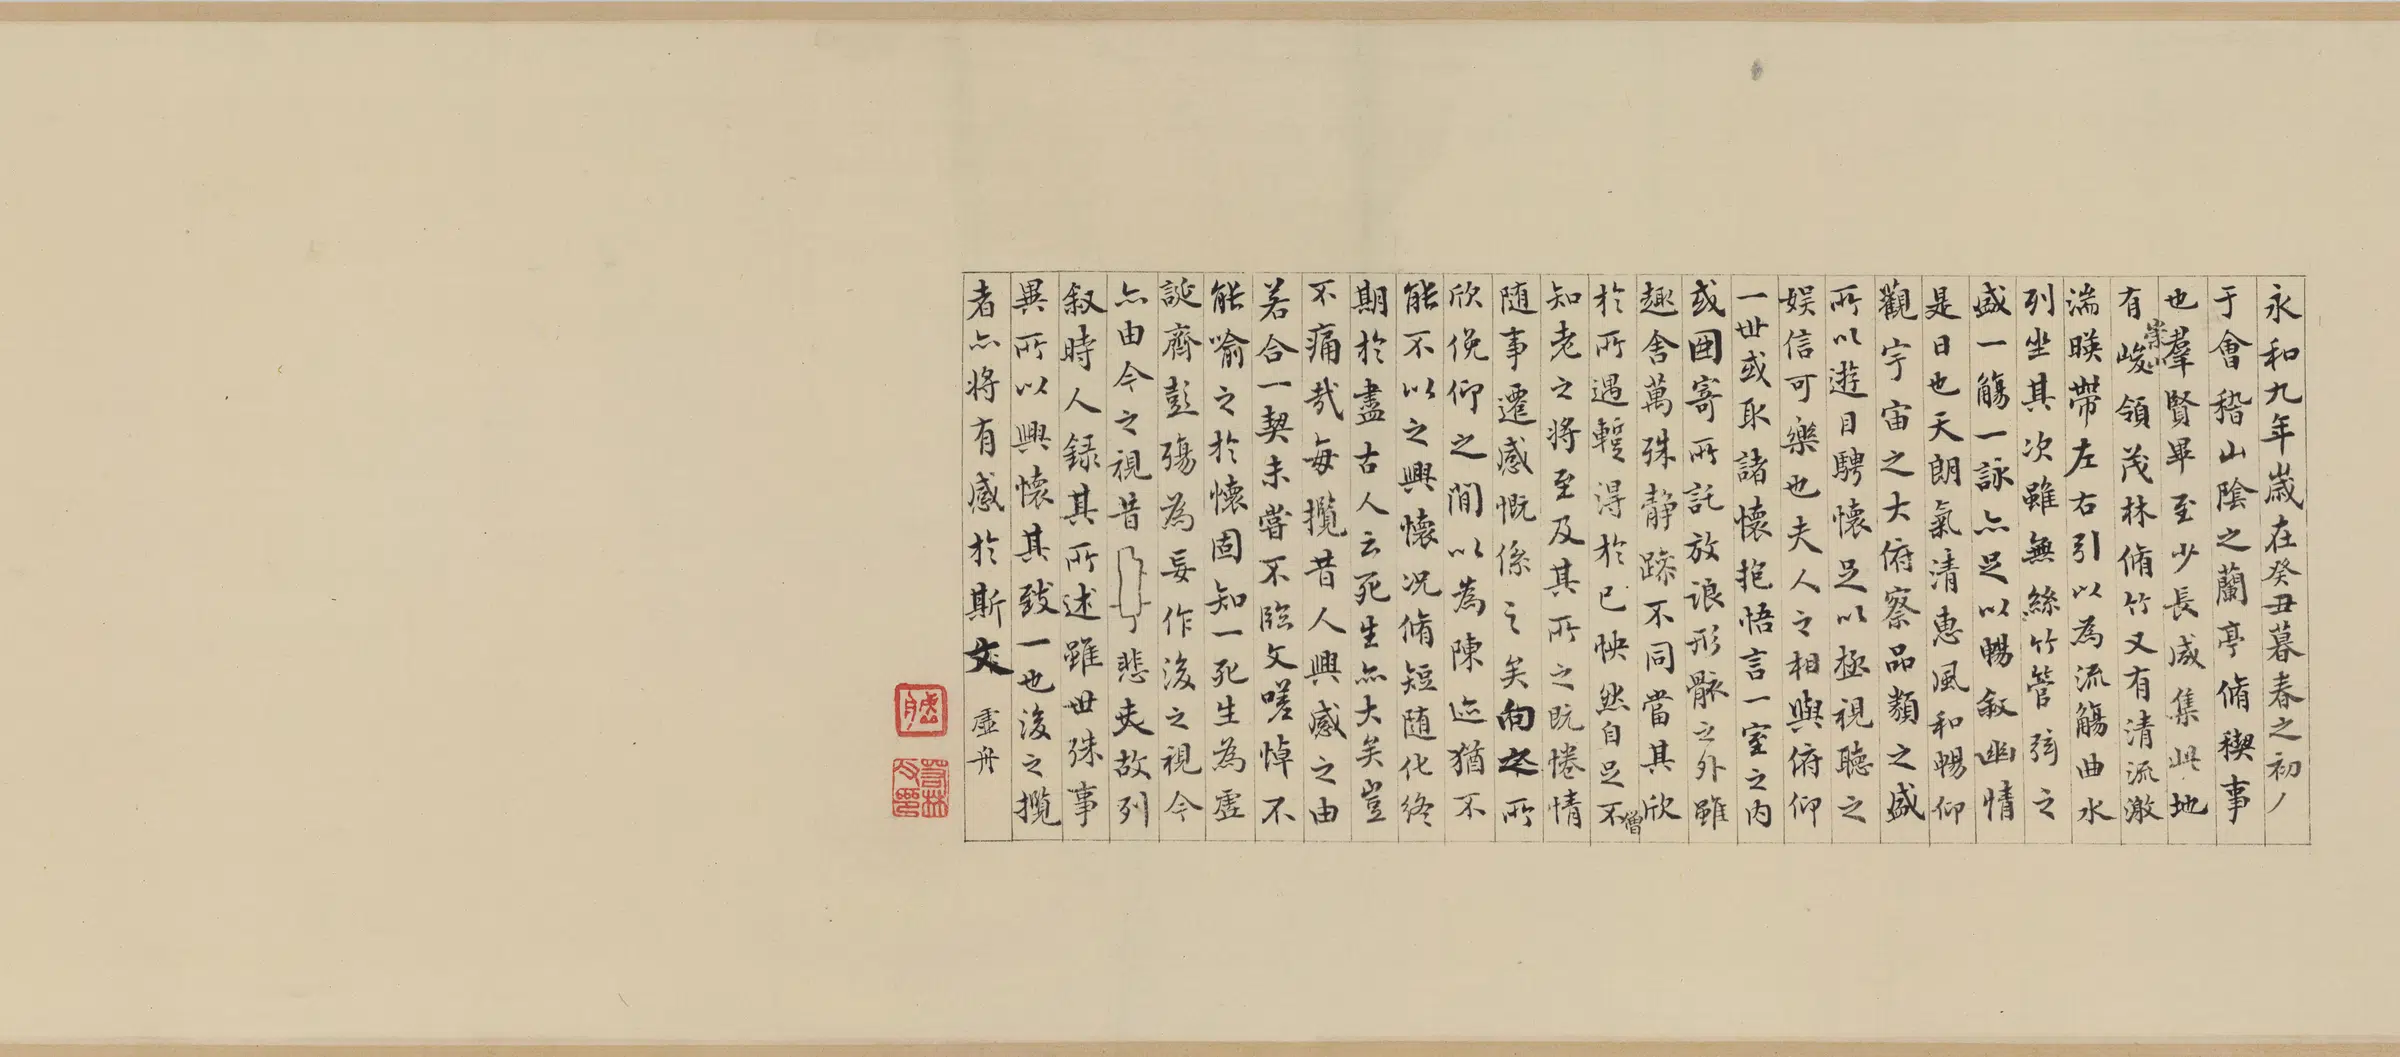 永和九年歲在癸丑暮春之初
于會稽山陰之蘭亭脩稧事
也羣賢畢至少長咸集此地
有崇山峻領茂林脩竹又有清流激
湍暎帶左右引以為流觴曲水
列坐其次雖無絲竹管弦之
盛一觴一詠亦足以暢敘幽情
是日也天朗氣清惠風和暢仰
觀宇宙之大俯察品類之盛
所以遊目騁懷足以極視聽之
娛信可樂也夫人之相與俯仰
一世或取諸懷抱悟言一室之內
或因寄所託放浪形骸之外雖
趣舍萬殊静躁不同當其欣
於所遇蹔得於己怏然自足不
知老之將至及其所之既惓情
随事遷感慨係之矣向之所
欣俛仰之間以為陳迹猶不
能不以之興懷況脩短随化終
期於盡古人云死生亦大矣豈
不痛哉每攬昔人興感之由
若合一契未嘗不臨文嗟悼不
能喻之於懷固知一死生為虛
誕齊彭殤為妄作後之視今
亦由今之視昔悲夫故列
敘時人錄其所述雖世殊事
異所以興懷其致一也後之攬
者亦將有感於斯文 虛舟
僧